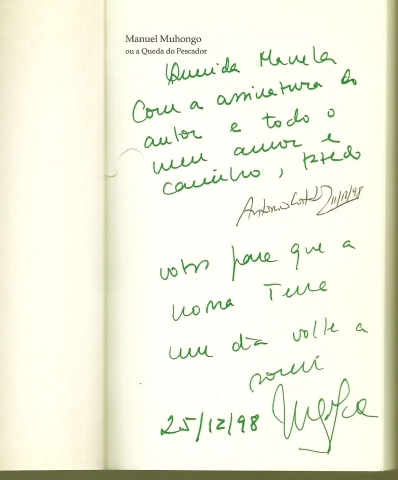 Manuel Muhongo
ou a Queda do Pescador
Querida Manela
Com a assinatura do
autor e todo o
meu amor e
carinho,
António 11/12/98
votos para que a
nossa Terra
um dia volte a
sorrir
25/12/98